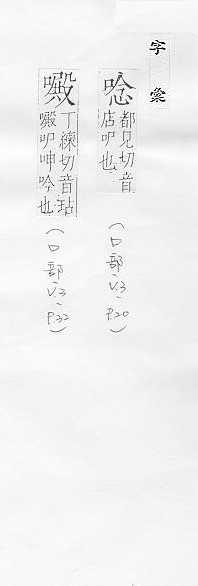 字彙
唸 都見切音
店唸吚也
(口部.V.3.P.20)
㘄 丁練切音玷
㘄吚呻吟也
(口部.V.3.P.32)